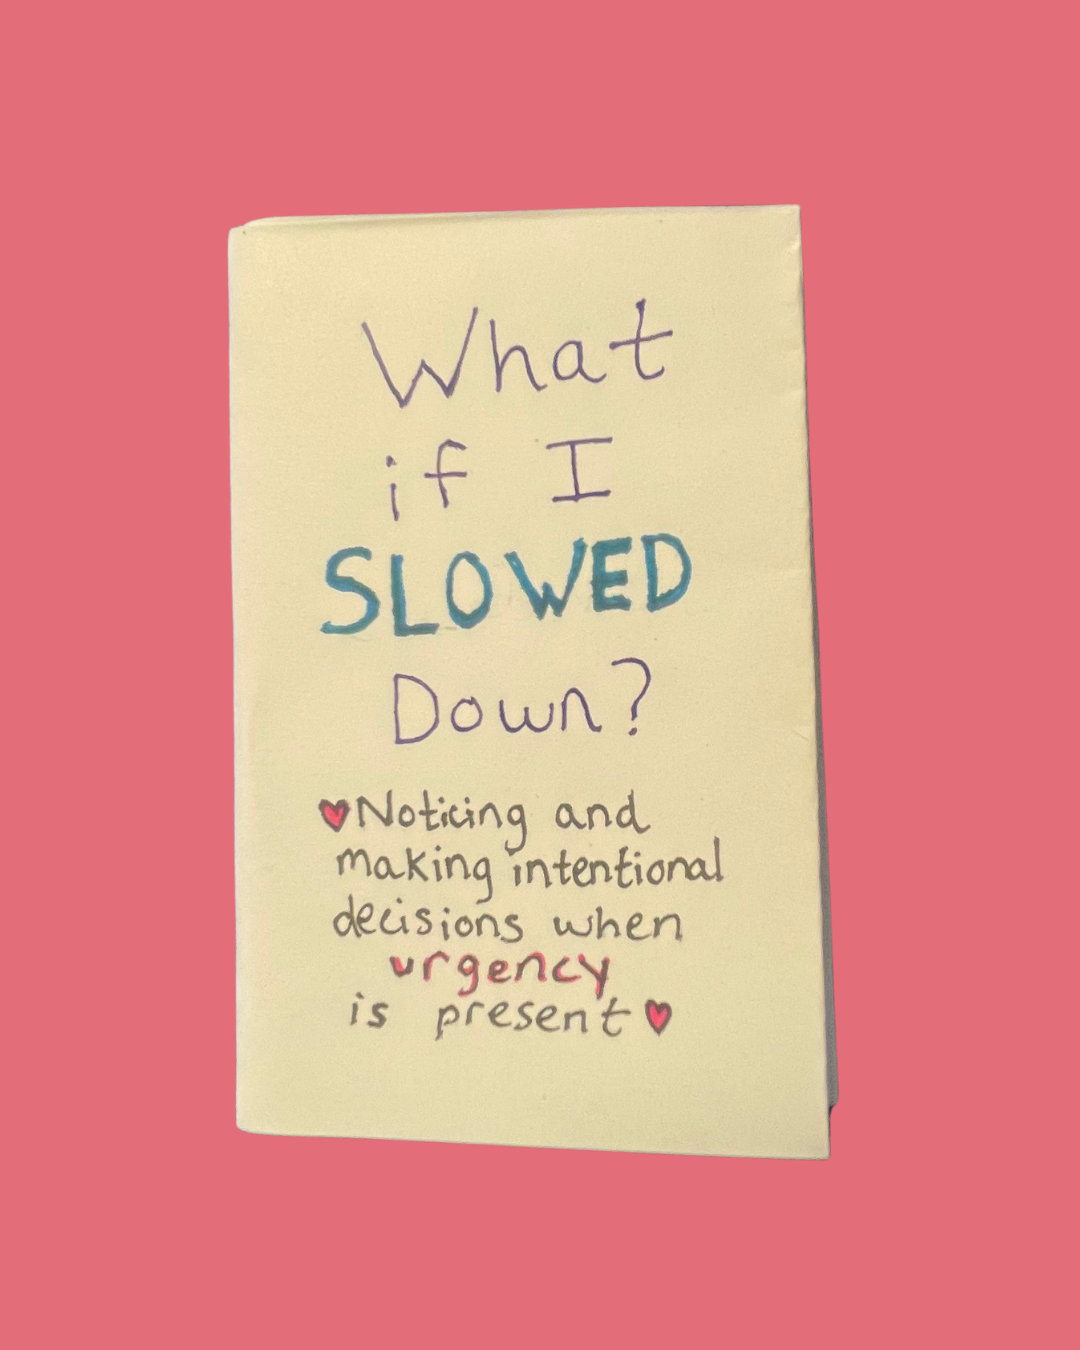 What
if I
SLOWED
Down?
♥Noticing and
making intentional
decisions when
urgency
is present♥